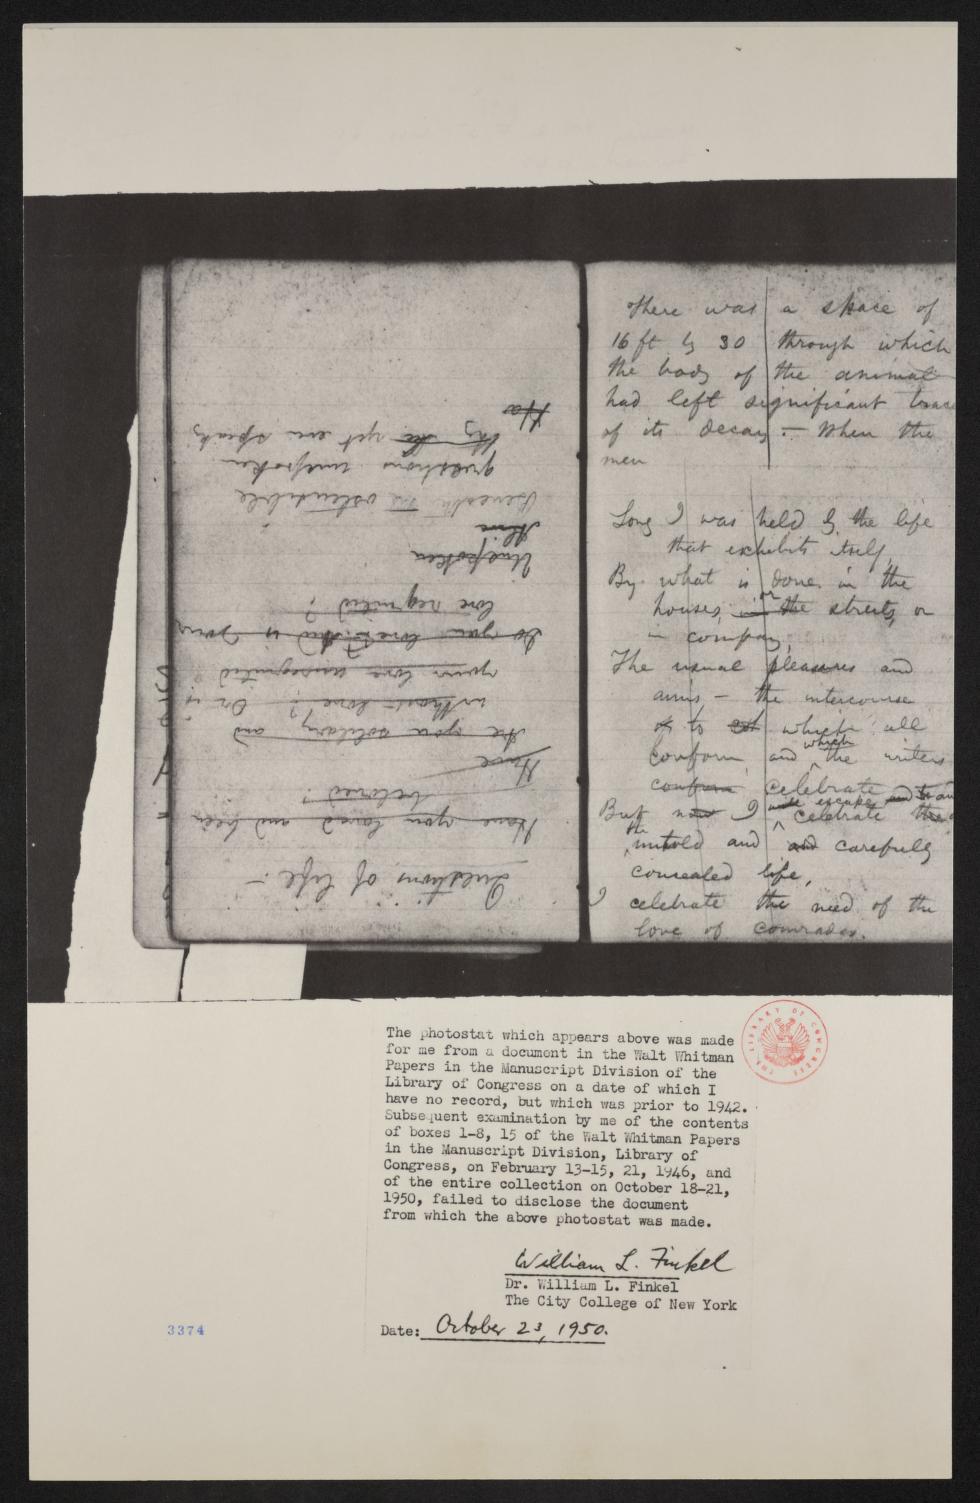 Questions of life. —
Have you loved and been
beloved?
Have
Are you solitary and
without love? Or is
your love unrequited
Do you love? And is your
love requited?
Unspoken
Beneath the ostensible
questions unspoken
yet ever speaks
Ha
there was a space of
16 ft by 30 through which
the body of the animal
had left significant trace
of its decay. — When the
men
Long I was held by the life
that exhibits itself,
By what is done in the
houses, in or the streets, or
in company,
The usual pleasures and
aims — the intercourse
of to which all
conform, and which the writers
conform celebrate
But now I escape and celebrate the
the untold and and carefully
concealed life,
I celebrate the need of the
love of comrades.
The photostat which appears above was made
for me from a document in the Walt Whitman
Papers in the Manuscript Division of the
Library of Congress on a date of which I
have no record, but which was prior to 1942.
Subsequent examination by me of the contents
of boxes 1-8, 15 of the Walt Whitman Papers
in the Manuscript Division, Library of
Congress, on February 13-15, 21, 1946, and
of the entire collection on October 18-21,
1950, failed to disclose the document
from which the above photostat was made.
William L. Finkel
Dr. William L. Finkel
The City College of New York
Date: October 23, 1950.
3374
THE LIBRARY OF CONGRESS